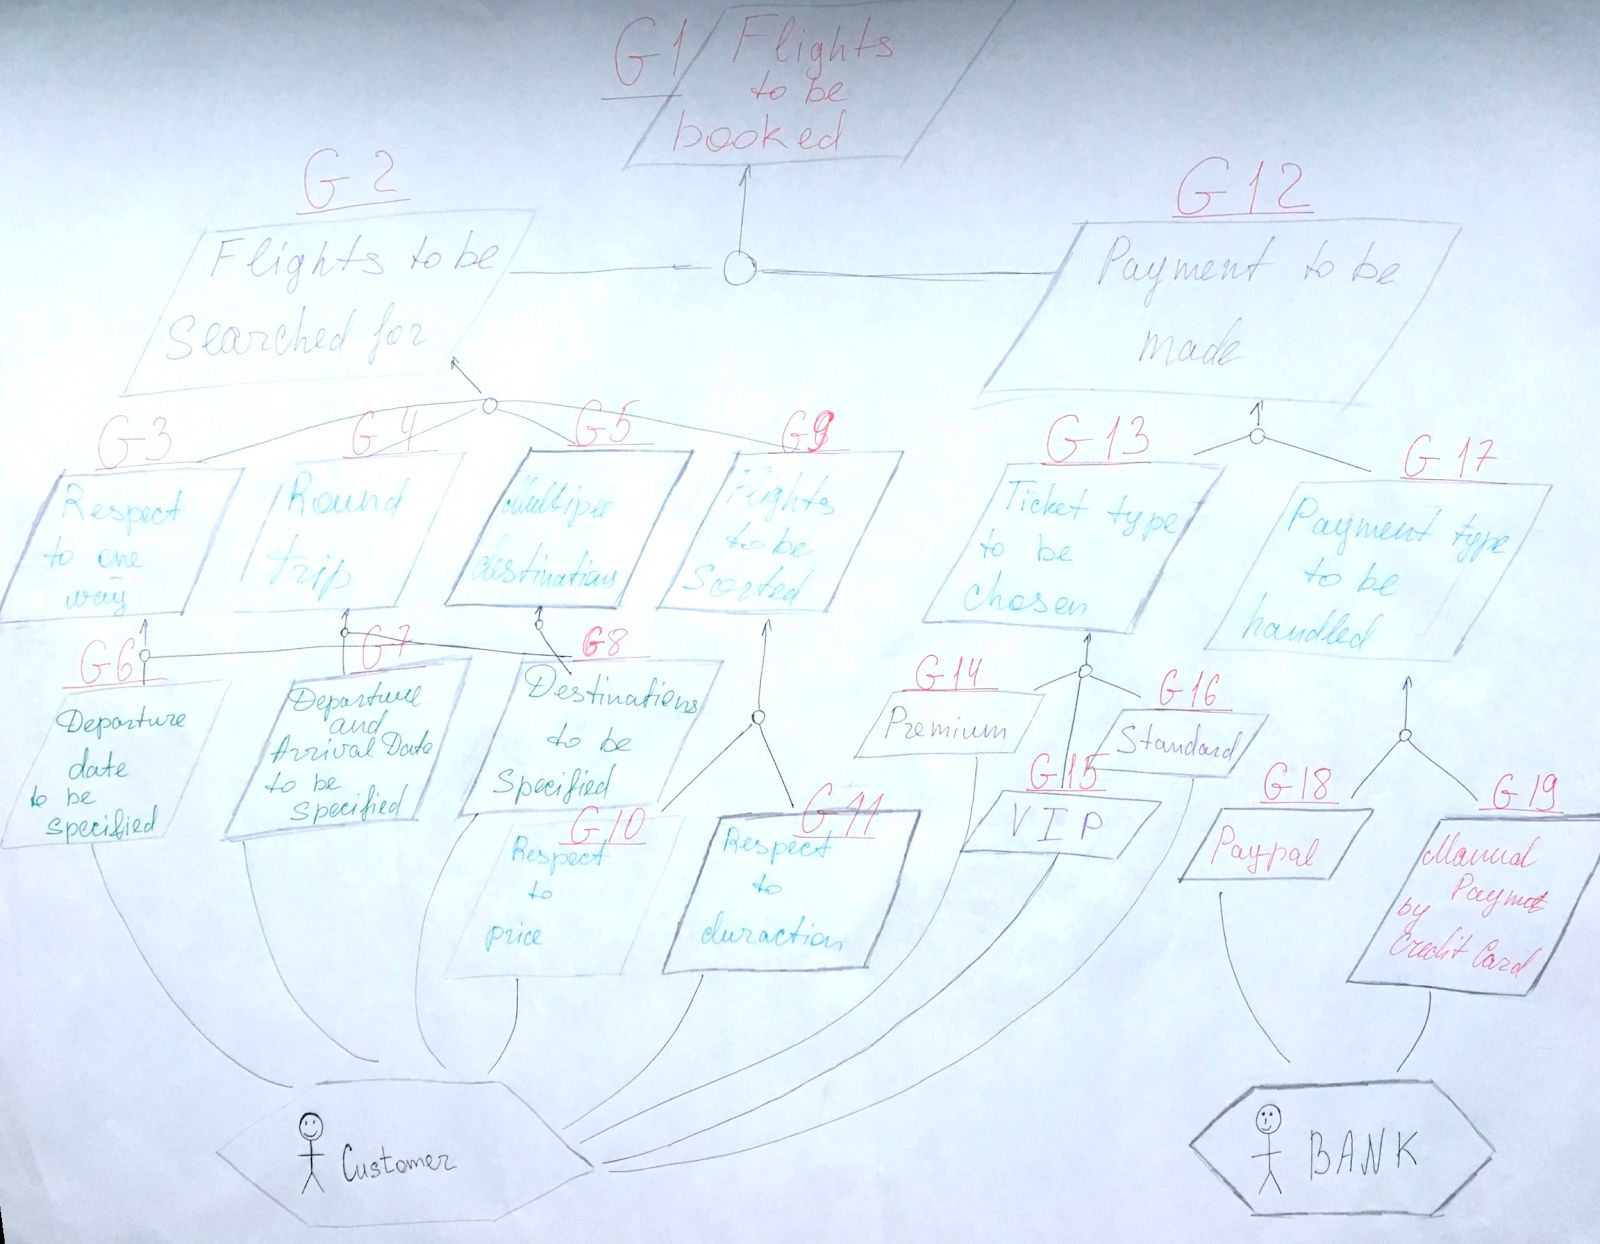 G1
Flights
to be
booked
G2
Flights to be
Searched for
G12
Payment to be
made
G3
Respect
to one
way
G4
Round
trip
G5
Multiple
destinations
G9
Flights
to be
Sorted
G13
Ticket type
to be
chosen
G17
Payment type
to be
handled
G6
Departure
date
to be
specified
G7
Departure
and
Arrival Date
to be
specified
G8
Destinations
to be
Specified
G10
Respect
to
price
G11
Respect
to
duraction
G14
Premium
G15
VIP
G16
Standard
G18
Paypal
G19
Manual
by
Credit Card
Customer
BANK